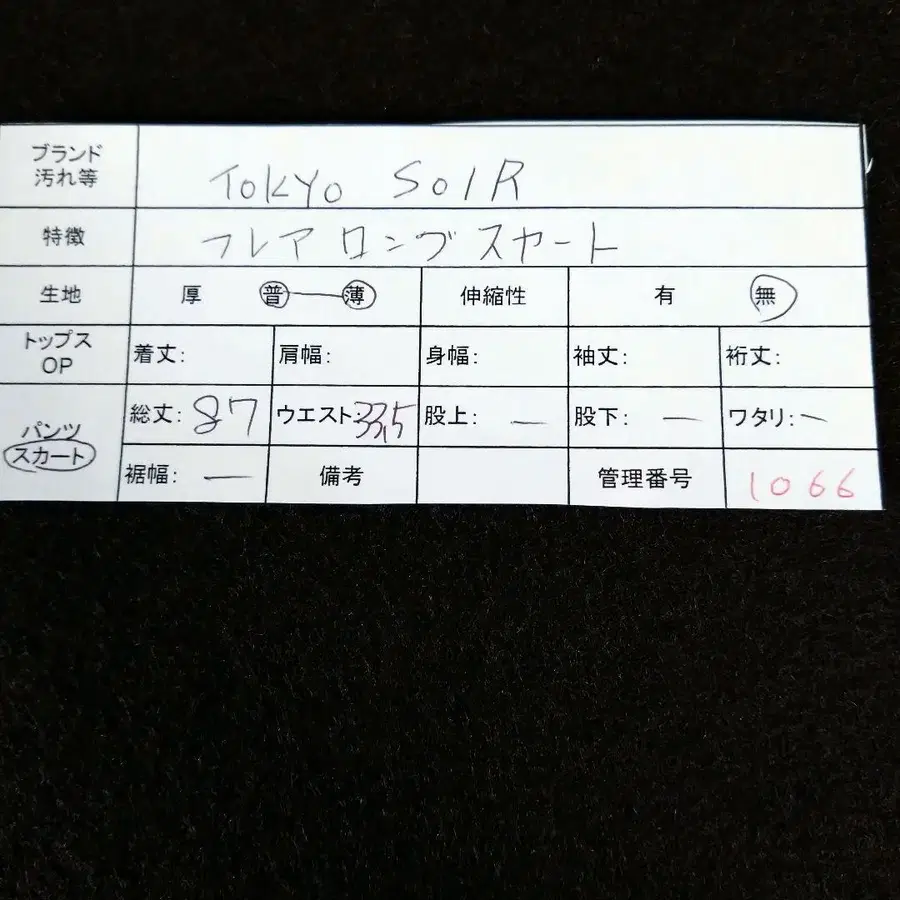 ブランド
汚れ等
TOKYO SOIR
特徴
フレア ロング スカート
生地 厚 普 薄 伸縮性 有 無
トップス
OP
着丈: 肩幅: 身幅: 袖丈: 裄丈:
パンツ
スカート
総丈: 87 ウエスト: 33.5 股上: — 股下: — ワタリ: —
裾幅: — 備考 管理番号 1066